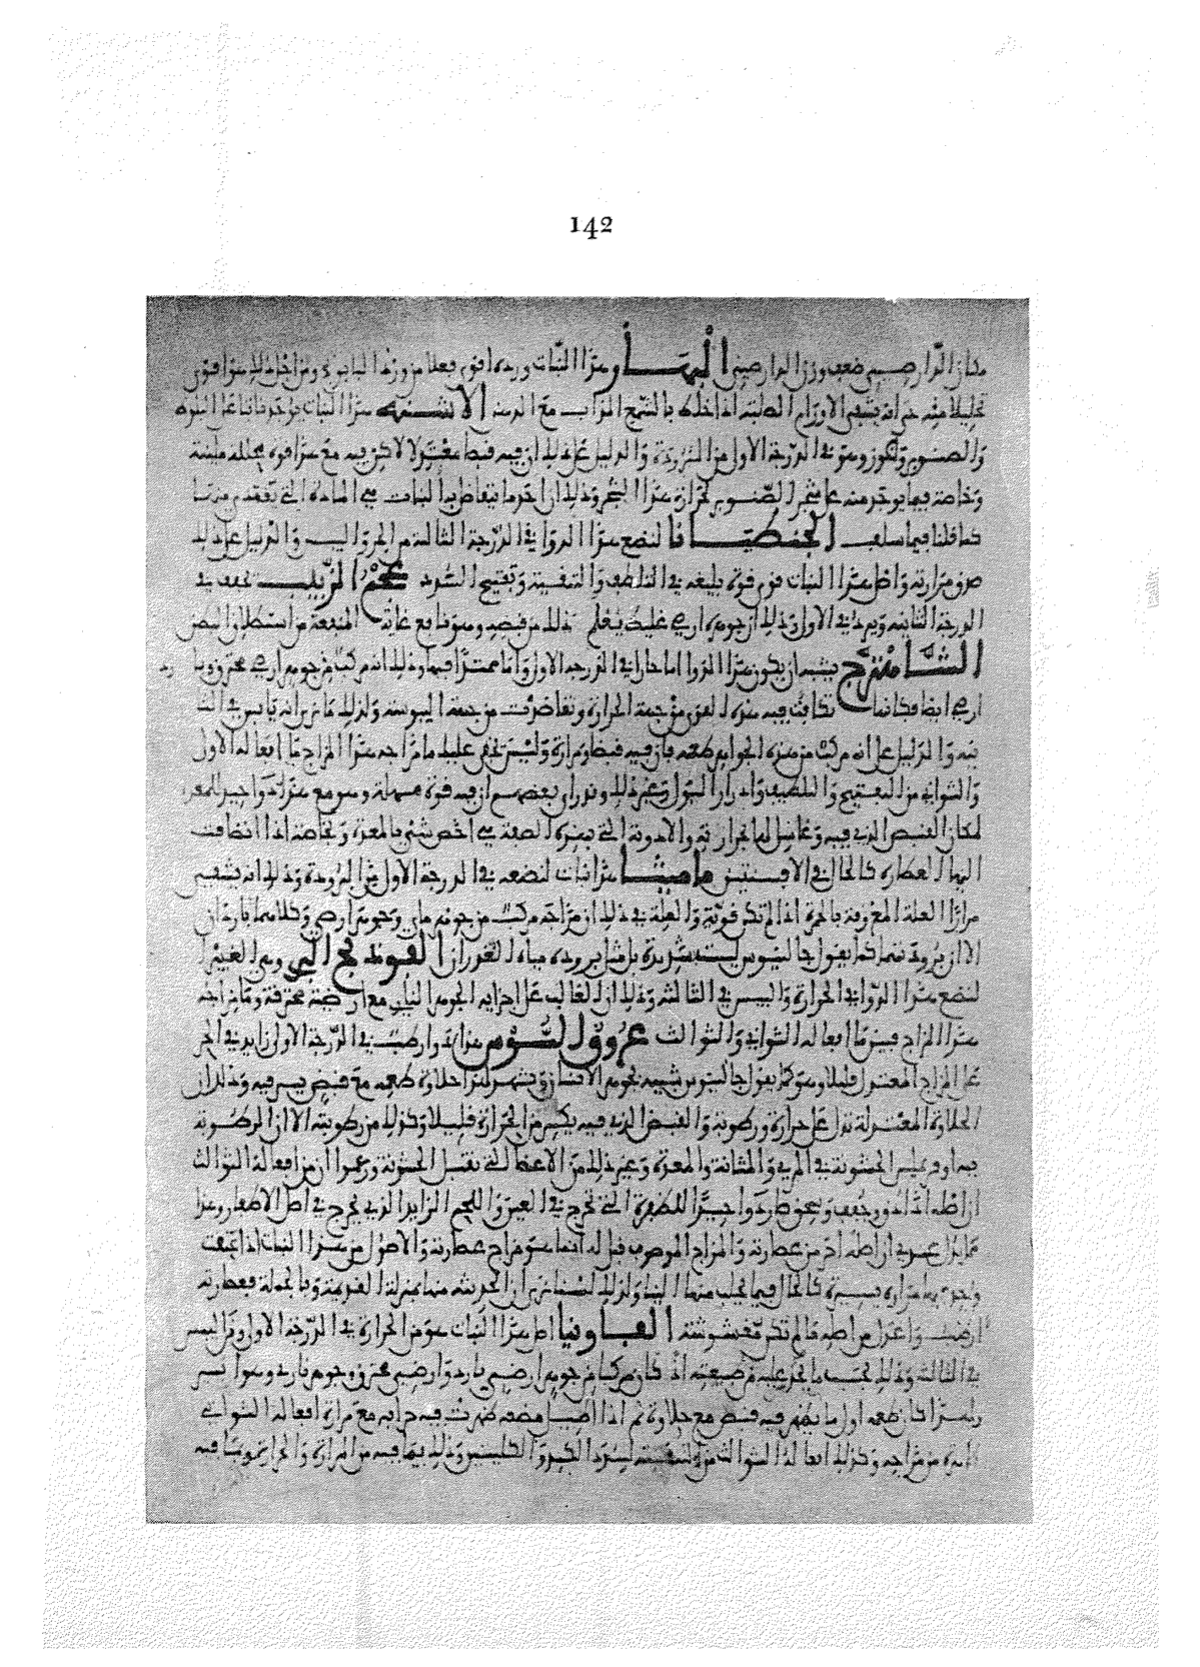 142
مكان الدارصيني ضعف وزن الدارصيني البهار هذا النبات ورده اقوى فعلا من ورد البابونج ومن اجل ذلك هو اقوى
تحليلا منه حتى انه يشفي الاورام الصلبة اذا خلط بالشمع المذاب مع الدهن الاشنه هذا النبات يوجد نابتا على البلوط
والصنوبر والجوز وهو في الدرجة الاولى من البرودة والدليل على ذلك ان فيه قبضا معتدلا لاكن فيه مع هذا قوة محللة ملينة
وخاصة فيما يوجد منه على شجر الصنوبر لحرارة هذا الشجر وذلك ان احد ما يتفاضل به النبات هي المادة التي
كما قلنا فيما سلف الجنطيانا لنضع هذا الدوا في الدرجة الثالثة من الحر واليبس والدليل على ذلك
صدق مرارته واصل هذا النبات قوي قوة بليغة في التلطيف والتنقية وتفتيح السدد عجم الزبيب يجفف في
الدرجة الثانية ويبرد في الاولى وذلك ان جوهره ارضي غليظ يعلم ذلك من قبضه وهو نافع غاية المنفعة من استطلاق البطن
الشاهترج يشبه ان يكون هذا الدوا اما حارا في الدرجة الاولى واما ممتزجا فيها وذلك انه مركب من جوهر ارضي محترق وبا رد
ارضي ايضا فكانما تكافت فيه هذه القوى من جهة الحرارة وتعاضدت من جهة اليبوسة ولذلك ما نرى انه يابس في الثا
نية والدليل على انه مركب من هذه الجواهر طعمه فان فيه قبضا ومرارة وليس يخفى عليك ما مزاجه هذا المزاج ما افعاله الاول
والثواني من التفتيح والتلطيف وادرار البول وغير ذلك وقد راى بعضهم ان فيه قوة مسهلة وهو مع هذا دوا جيد للمعدة
لمكان القبض الذي فيه وغاسل لها بمرارته والادوية التي بهذه الصفة هي اخص شي بالمعدة وبخاصة اذا انضافت
اليها العطارة كالحال في الافسنتين ماميثا هذا نبات لنضعه في الدرجة الاولى من البرودة وذلك انه يشفي
مرارا العلة المعروفة بالحمرة اذا لم تكن قوية والعلة في ذلك ان مزاجه مركب من جوهر ماي وجوهر ارضي وكلاهما باردان
الا ان برودتهما كما يقول جالينوس ليست شديدة بل مثل برودة مياه الغدران الفوذنج البري وهي الغبيرا
لنضع هذا الدوا في الحرارة واليبس في الثالثة وذلك ان الغالب على اجزايه الجوهر الناري مع ارضية محترقة وما مزاجه
هذا المزاج فبين ما افعاله الثواني والثوالث عروق السوس هذا دوا رطب في الدرجة الاولى زايد في الحر
على المزاج المعتدل قليلا وهو كما يقول جالينوس شبيه بجوهر الانسان وتشهد لهذا حلاوة طعمه مع قبض يسير فيه وذلك ان
الحلاوة المعتدلة تدل على حرارة ورطوبة والقبض الذي فيه يكسر من الحرارة قليلا وكذلك من رطوبته الا ان الرطوبة
فيه اوفر يملس الخشونة في المري والمثانة والمعدة وغير ذلك من الاعضا التي تقبل الخشونة وزعموا ان من افعاله الثوالث
ان اصله اذا اندق وجفف وسحق صار دوا جيدا للظفرة التي تخرج في العين واللحم الزايد الذي يخرج في اصل الاظفار وهذا
مما يدل عندي ان اصله احد من عصارته والمزاج الموصوف قبل له انما هو مزاج عصارته والاصول من هذا النبات اذا
وجد بها مرارة يسيرة كالحال فيما يجلب منها الينا ولذلك لسنا نرى ان الحديثة منها بمنزلة القديمة وبالجملة فعصارته
ارطب واعدل من اصله ما لم تكن مغشوشة الفاونيا اصل هذا النبات هو من الحرارة في الدرجة الاولى ومن اليبس
في الثالثة وذلك بحسب ما يظهر عليه من طبيعته اذ كان مركبا من جوهر ارضي بارد وارضي محترق وجوهر ناري
ولهذا كان طعمه اول ما يظهر فيه قبض مع حلاوة ثم اذا اطيل مضغه ظهرت فيه حرافة مع مرارة افعاله الثواني
من مزاجه وكذلك افعاله الثوالث من تنقيته لسدد الكبد والكليتين وذلك بما فيه من المرارة والحرارة وبما فيه